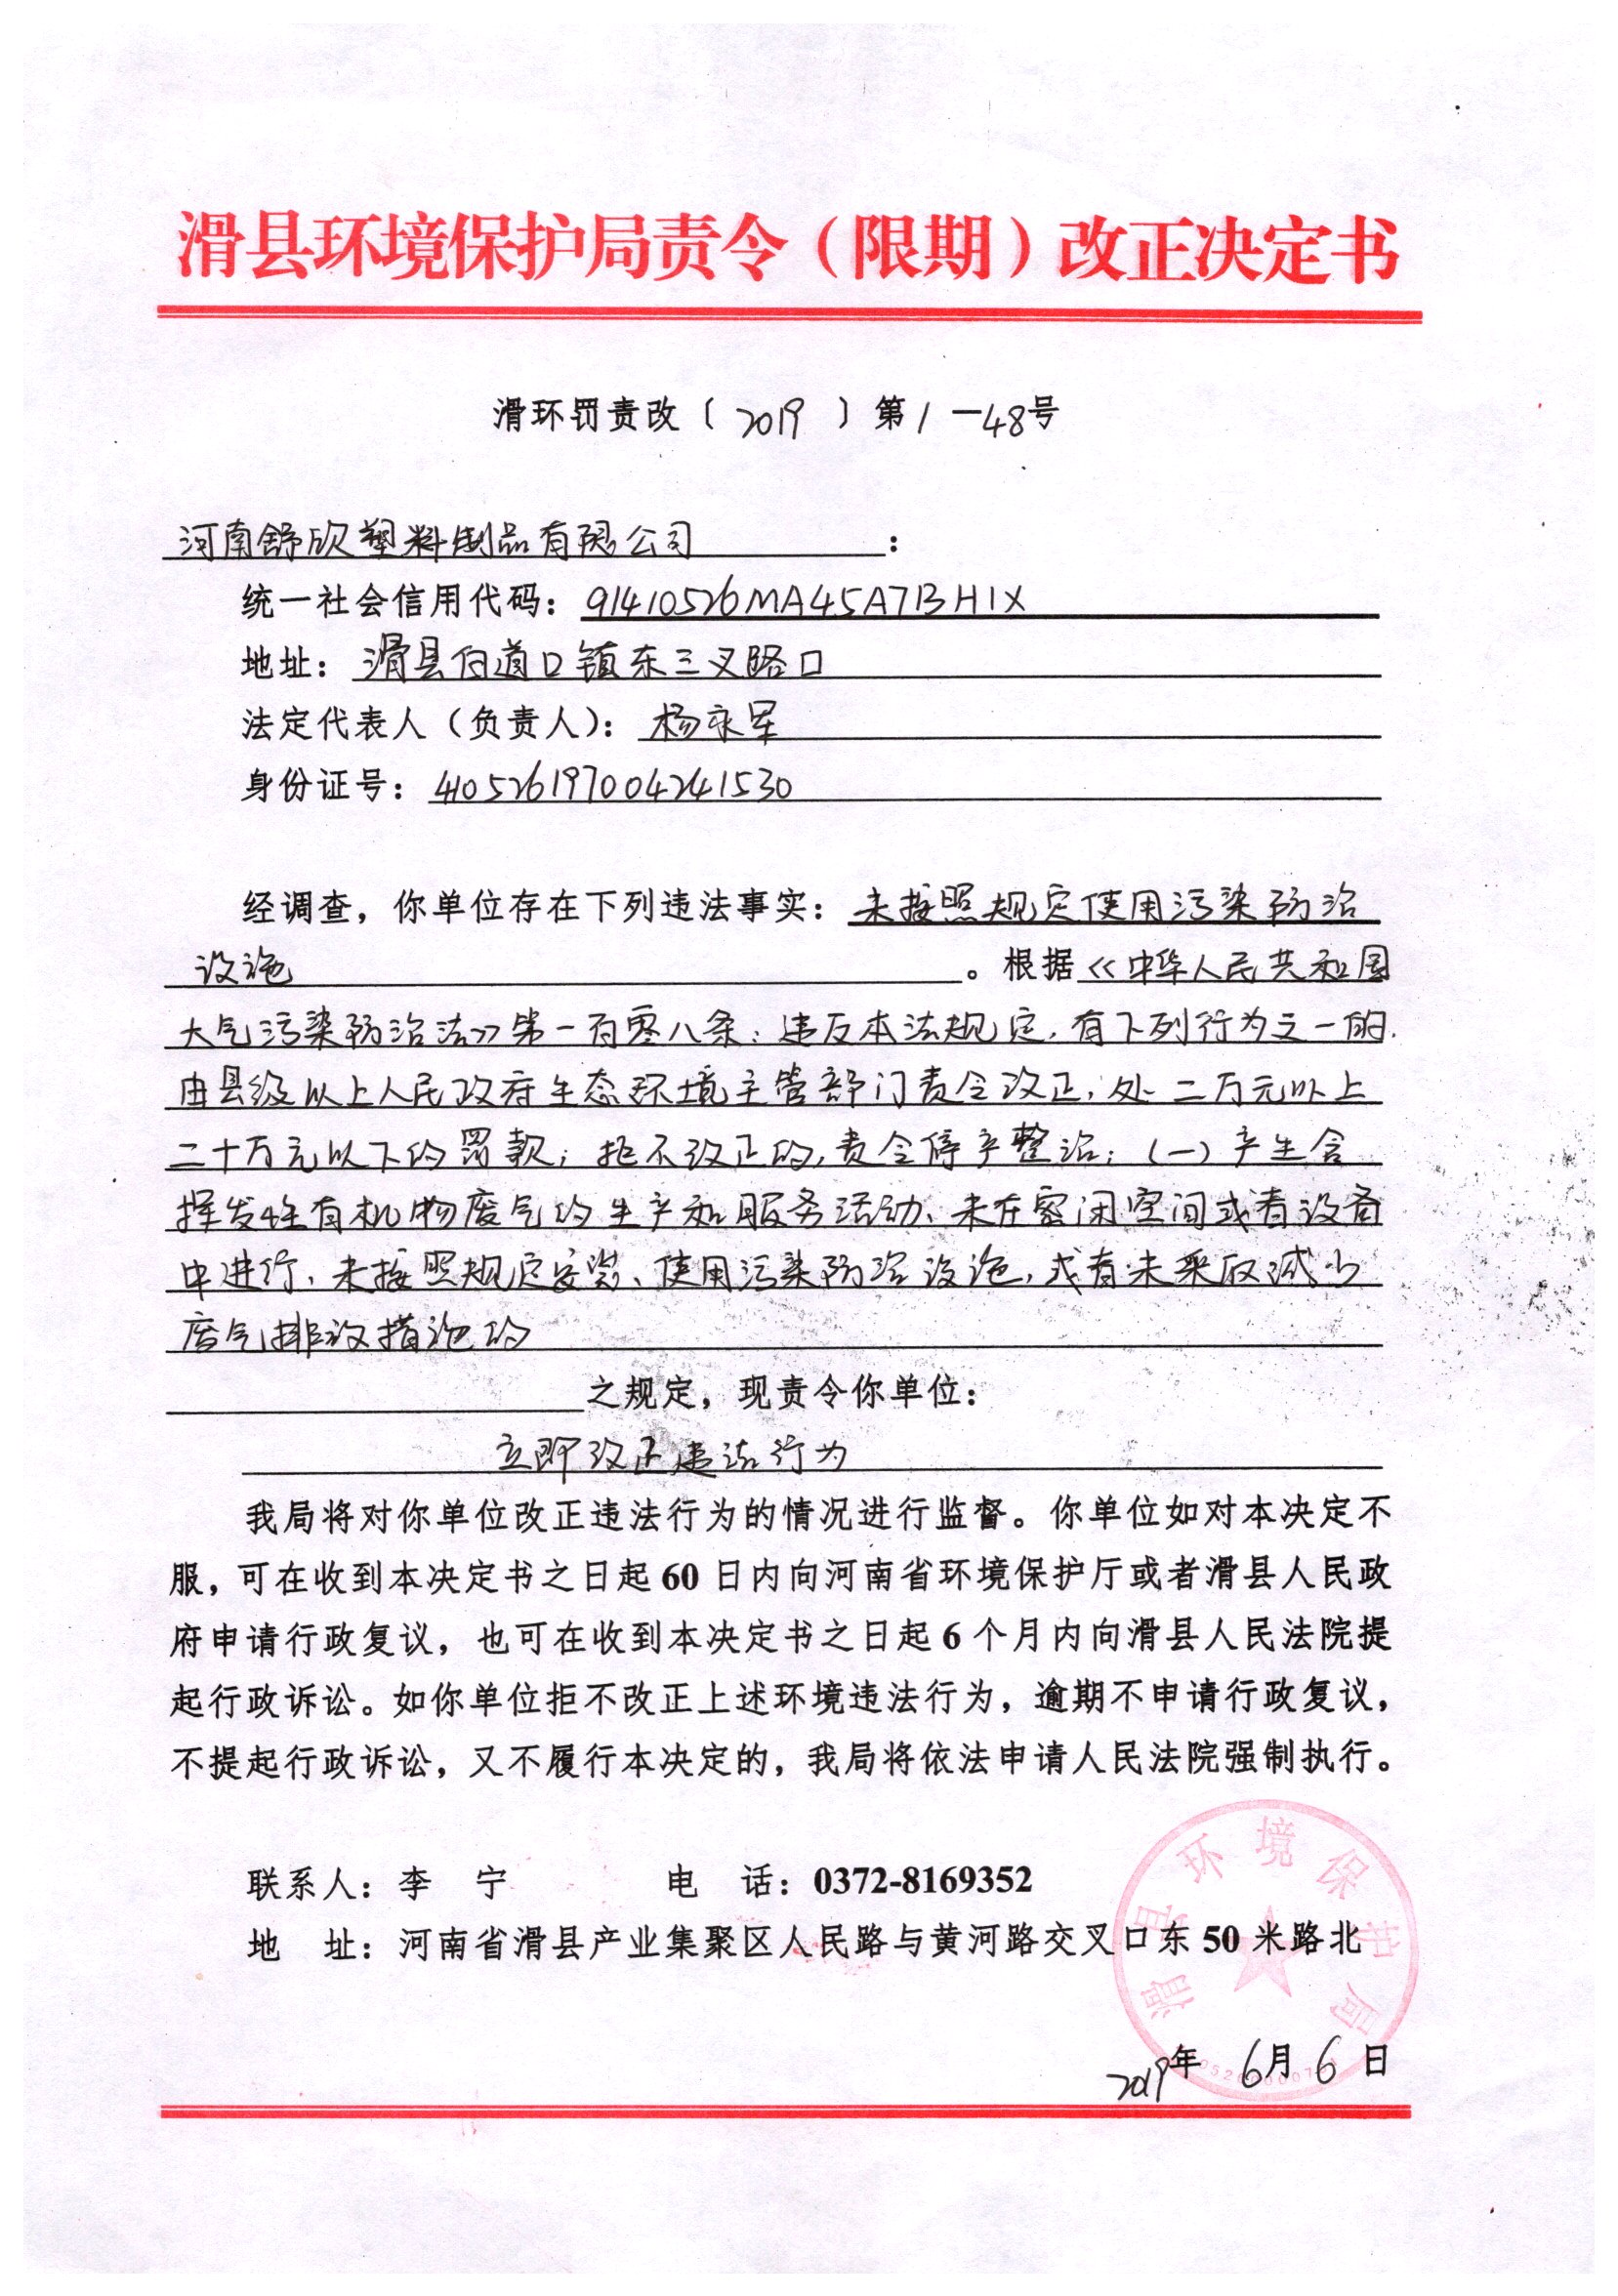 滑县环境保护局责令（限期）改正决定书
滑环罚责改〔2019〕第1-48号
河南舒欣塑料制品有限公司：
统一社会信用代码：91410526MA45A7BH1X
地址：滑县白道口镇东三叉路口
法定代表人（负责人）：杨永军
身份证号：410526197004241530
经调查，你单位存在下列违法事实：未按照规定使用污染防治
设施。根据《中华人民共和国
大气污染防治法》第一百零八条：违反本法规定，有下列行为之一的，
由县级以上人民政府生态环境主管部门责令改正，处二万元以上
二十万元以下的罚款；拒不改正的，责令停产整治；（一）产生含
挥发性有机物废气的生产和服务活动，未在密闭空间或者设备
中进行，未按照规定安装、使用污染防治设施，或者未采取减少
废气排放措施的
之规定，现责令你单位：
立即改正违法行为
我局将对你单位改正违法行为的情况进行监督。你单位如对本决定不
服，可在收到本决定书之日起60日内向河南省环境保护厅或者滑县人民政
府申请行政复议，也可在收到本决定书之日起6个月内向滑县人民法院提
起行政诉讼。如你单位拒不改正上述环境违法行为，逾期不申请行政复议，
不提起行政诉讼，又不履行本决定的，我局将依法申请人民法院强制执行。
联系人：李 宁 电 话：0372-8169352
地 址：河南省滑县产业集聚区人民路与黄河路交叉口东50米路北
滑县环境保护局
2019年6月6日